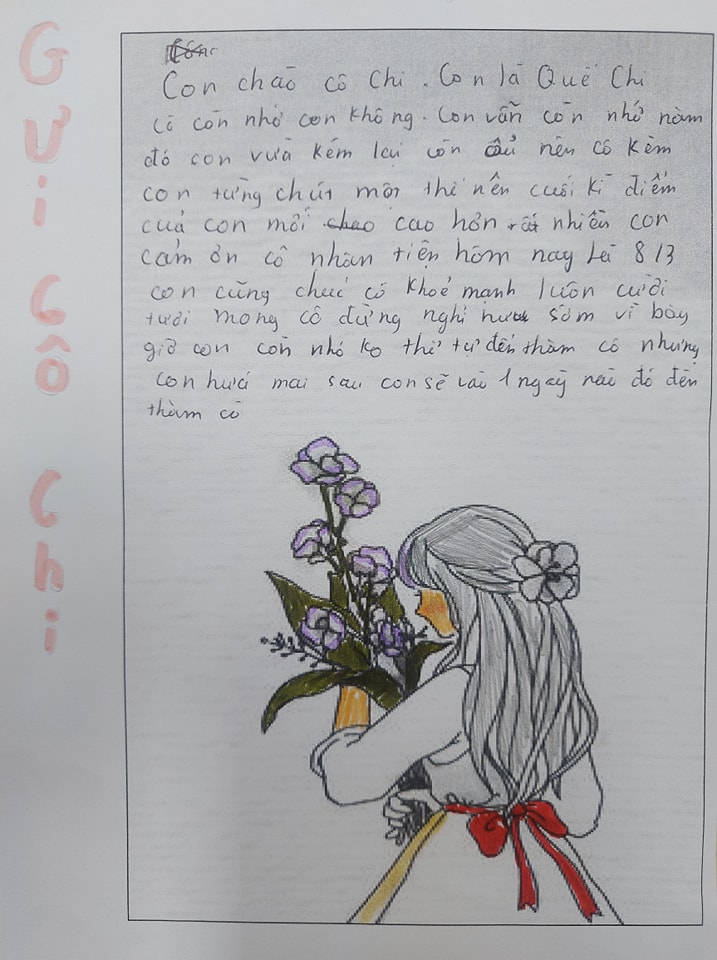 Gửi Cô Chi
Con chào cô Chi. Con là Quế Chi
cô còn nhớ con không. Con vẫn còn nhớ năm
đó con vừa kém lại còn ẩu nên cô kèm
con từng chút một thế nên cuối kì điểm
của con mới cao hơn rất nhiều con
cảm ơn cô nhân tiện hôm nay Lễ 8/3
con cũng chúc cô khoẻ mạnh luôn cười
tươi mong cô đừng nghỉ hưu sớm vì bây
giờ con còn nhỏ ko thể tự đến thăm cô nhưng
con hứa mai sau con sẽ vào 1 ngày nào đó đến
thăm cô